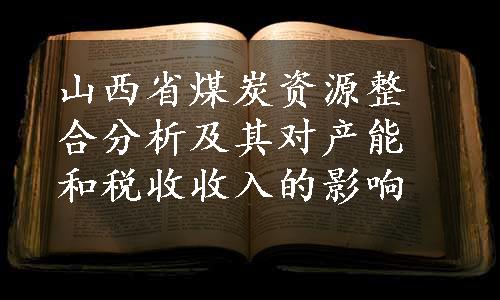 山西省煤炭资源整
合分析及其对产能
和税收收入的影响